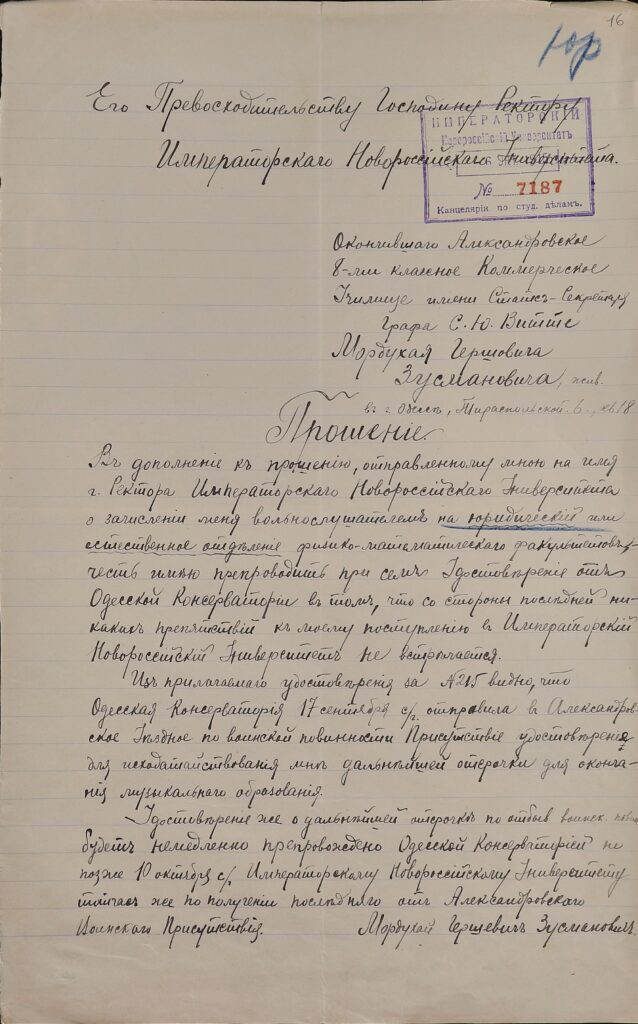 16
Юр
Его Превосходительству Господину Ректору
ИМПЕРАТОРСКІЙ
Новороссійскій Университетъ
№ 7187
Канцелярія по студ. дѣламъ.
Императорскаго Новороссійскаго Университета.
Окончившаго Александровское
8-ми классное Коммерческое
Училище имени Статсъ-Секретаря
Графа С. Ю. Витте
Мордухая Гершовича
Зусмановича, жив.
въ г. Одессѣ, Тираспольской 6, кв. 18
Прошеніе.
Въ дополненіе къ прошенію, отправленному мною на имя
г. Ректора Императорскаго Новороссійскаго Университета
о зачисленіи меня вольнослушателемъ на юридическій или
естественное отдѣленіе физико-математическаго факультетовъ,
честь имѣю препроводить при семъ Удостовѣреніе отъ
Одесской Консерваторіи въ томъ, что со стороны послѣдней ни-
какихъ препятствій къ моему поступленію въ Императорскій
Новороссійскій Университетъ не встрѣчается.
Изъ прилагаемаго удостовѣренія за №215 видно, что
Одесская Консерваторія 17 сентября с/г. отправила въ Александров-
ское Уѣздное по воинской повинности Присутствіе удостовѣреніе
для исходатайствованія мнѣ дальнѣйшей отсрочки для оконча-
нія музыкальнаго образованія.
Удостовѣреніе же о дальнѣйшей отсрочкѣ по отбыв. воинск.
будетъ немедленно препровождено Одесской Консерваторіей не
позже 10 октября с/г. Императорскому Новороссійскому Университету
тотчасъ же по полученіи послѣдняго отъ Александровскаго
Воинскаго Присутствія.
Мордухай Гершевичъ Зусмановичъ